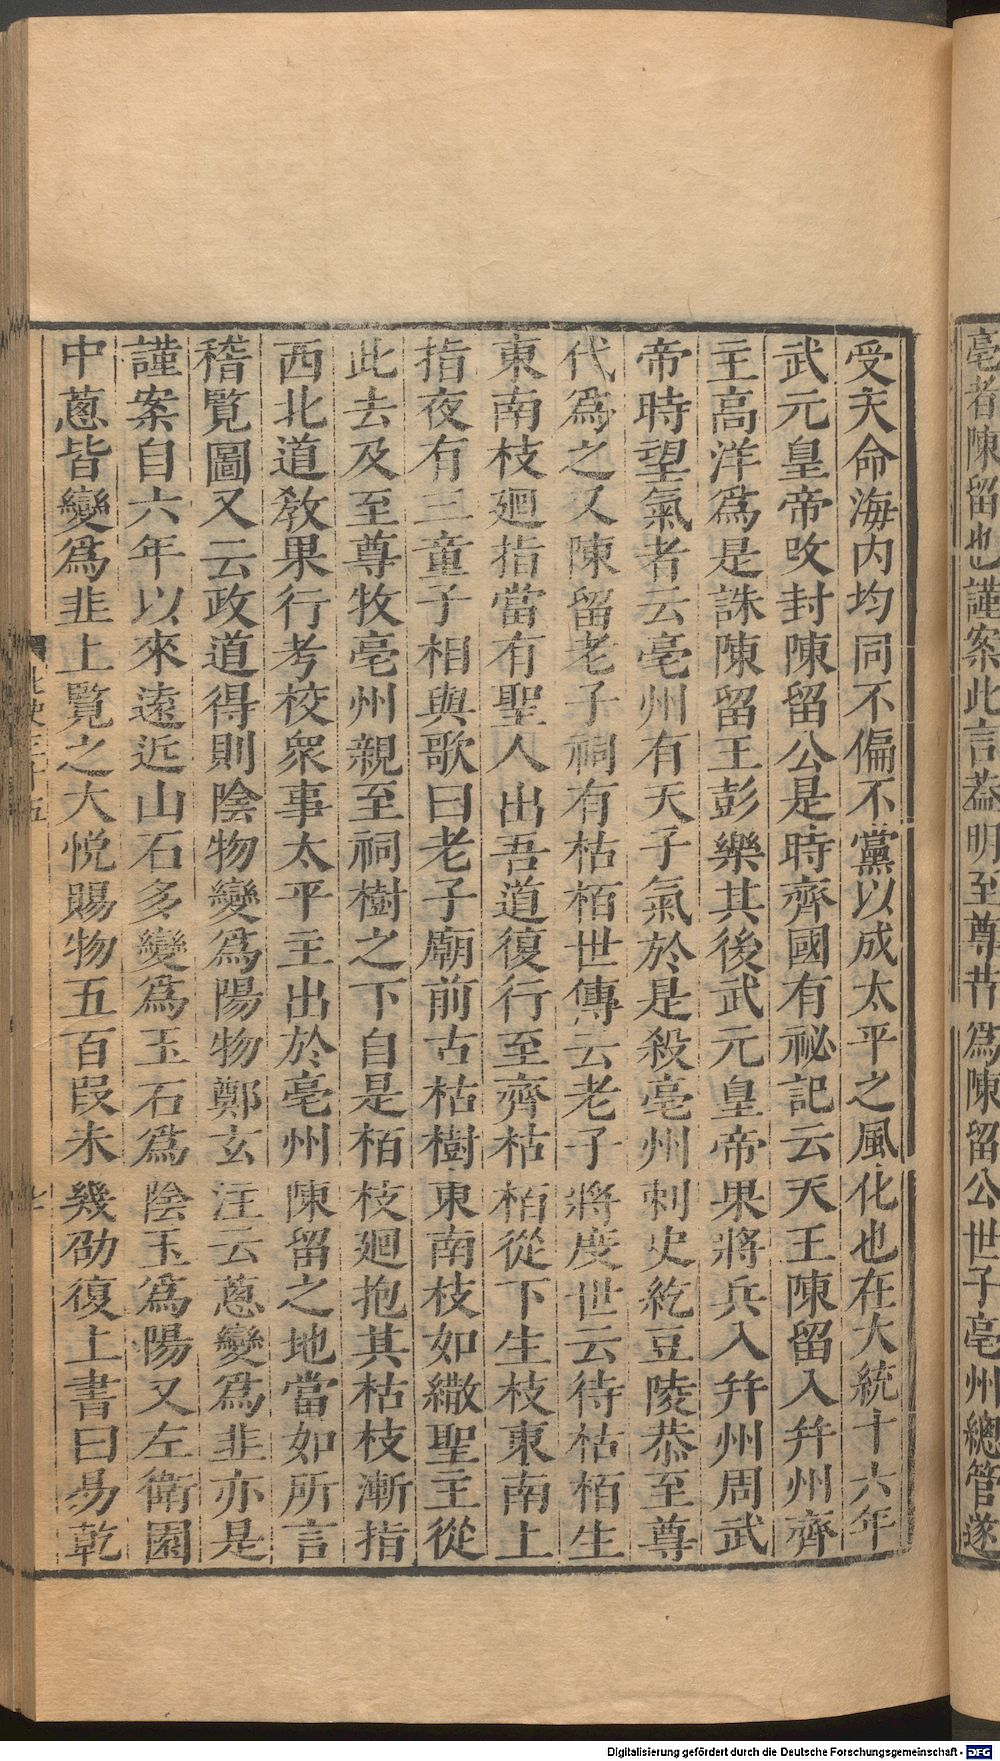 亳者陳留也謹案此言葢明至尊昔爲陳留公世子亳州總管遂
受天命海内均同不偏不黨以成太平之風化也在大統十六年
武元皇帝攺封陳留公是時齊國有祕記云天王陳留入幷州齊
主高洋爲是誅陳留王彭樂其後武元皇帝果將兵入幷州周武
帝時望氣者云亳州有天子氣於是殺亳州刺史紇豆陵恭至尊
代爲之又陳留老子祠有枯栢世傳云老子將度世云待枯栢生
東南枝廻指當有聖人出吾道復行至齊枯栢從下生枝東南上
指夜有三童子相與歌曰老子廟前古枯樹東南枝如繖聖主從
此去及至尊牧亳州親至祠樹之下自是栢枝廻抱其枯枝漸指
西北道敎果行考校衆事太平主出於亳州陳留之地當如所言
稽覧圖又云政道得則陰物變爲陽物鄭玄注云蔥變爲韭亦是
謹案自六年以來遠近山石多變爲玉石爲陰玉爲陽又左衛園
中蔥皆變爲韭上覧之大悅賜物五百段未幾劭復上書曰易乾
北史三十五
七
Digitalisierung gefördert durch die Deutsche Forschungsgemeinschaft - DFG